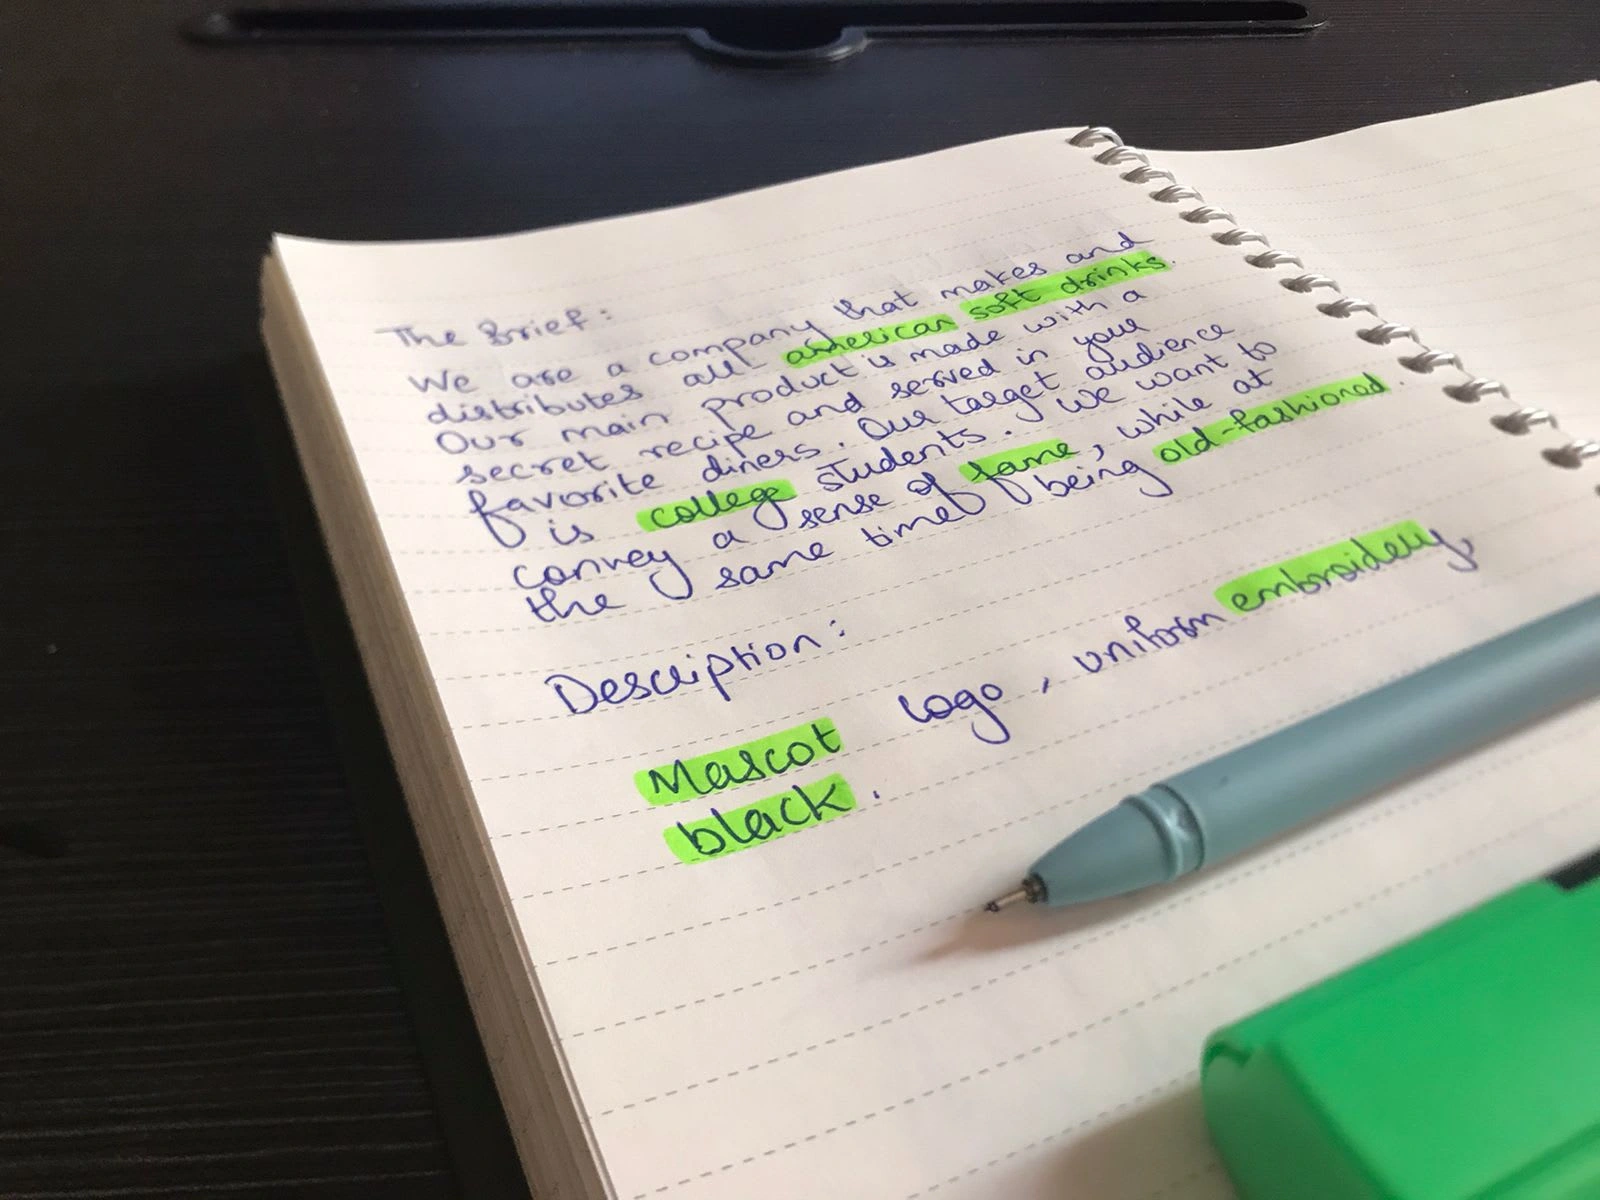 The Brief:
We are a company that makes and
distributes all american soft drinks.
Our main product is made with a
secret recipe and served in your
favorite diners. Our target audience
is college students. We want to
convey a sense of fame, while at
the same time being old-fashioned.
Description:
Mascot logo, uniform embroidery,
black.